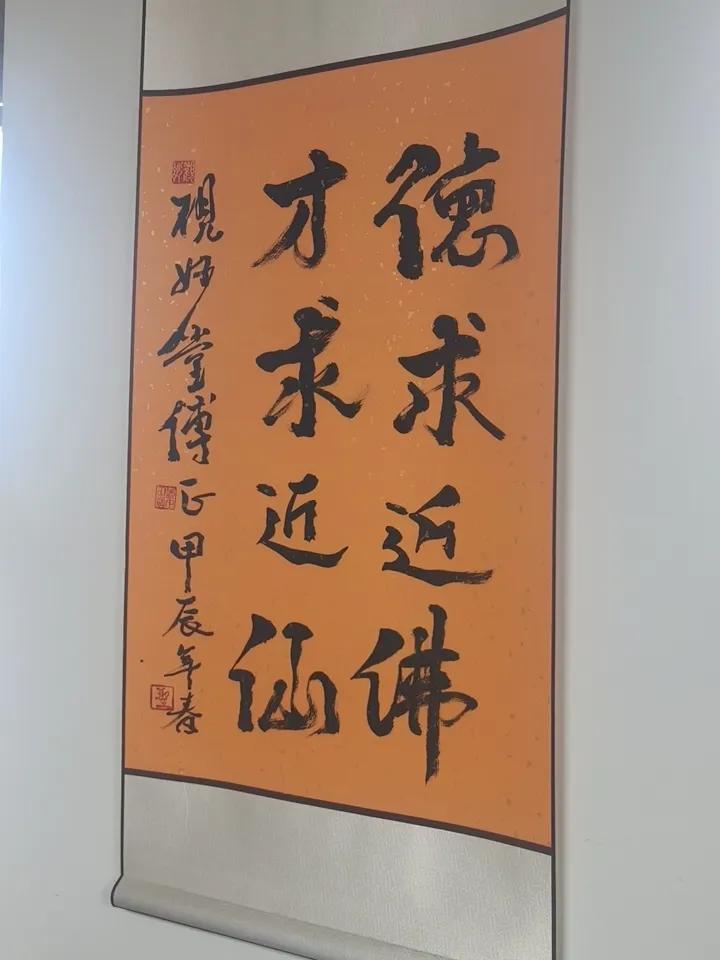 德求近佛
才求近仙
硯妙堂傅正甲辰年春